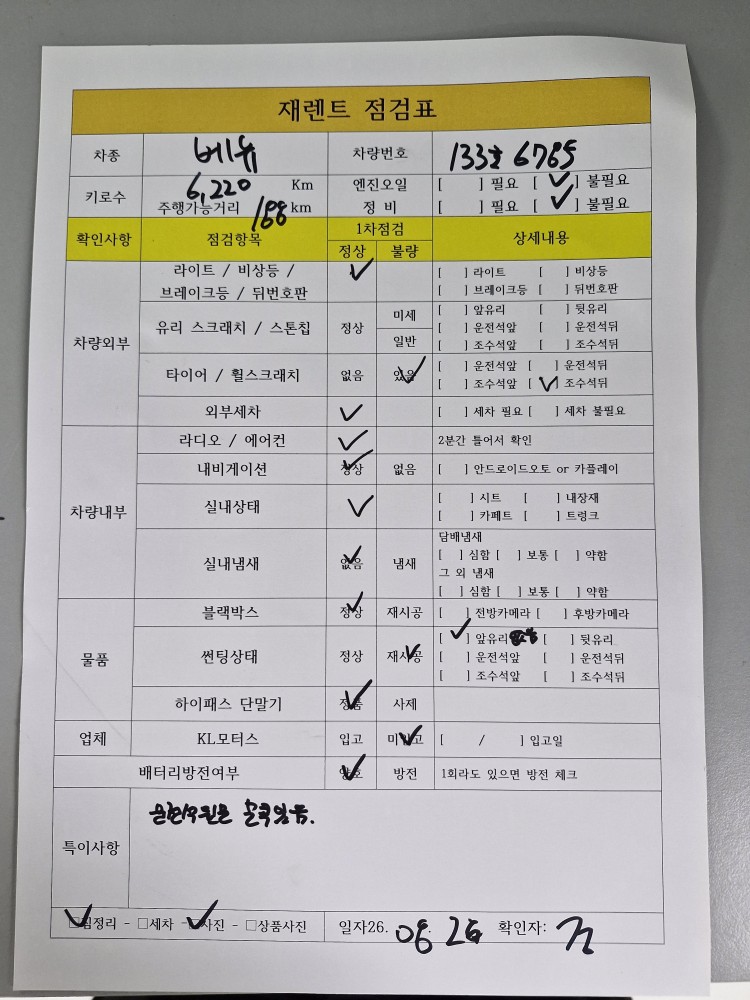 재렌트 점검표
차종 베뉴 차량번호 133호 6785
키로수 6,220 Km 엔진오일 [ ] 필요 [ ✓ ] 불필요
주행가능거리 188 km 정 비 [ ] 필요 [ ✓ ] 불필요
확인사항 점검항목 1차점검 상세내용
정상 불량
차량외부
라이트 / 비상등 / ✓ [ ] 라이트 [ ] 비상등
브레이크등 / 뒤번호판 [ ] 브레이크등 [ ] 뒤번호판
유리 스크래치 / 스톤칩 정상 미세 일반
[ ] 앞유리 [ ] 뒷유리
[ ] 운전석앞 [ ] 운전석뒤
[ ] 조수석앞 [ ] 조수석뒤
타이어 / 휠스크래치 없음 있음 ✓
[ ] 운전석앞 [ ] 운전석뒤
[ ] 조수석앞 [ ✓ ] 조수석뒤
외부세차 ✓ [ ] 세차 필요 [ ] 세차 불필요
차량내부
라디오 / 에어컨 ✓ 2분간 틀어서 확인
내비게이션 정상 ✓ 없음 [ ] 안드로이드오토 or 카플레이
실내상태 ✓ [ ] 시트 [ ] 내장재
[ ] 카페트 [ ] 트렁크
실내냄새 없음 ✓ 냄새
담배냄새
[ ] 심함 [ ] 보통 [ ] 약함
그 외 냄새
[ ] 심함 [ ] 보통 [ ] 약함
물품
블랙박스 정상 ✓ 재시공 [ ] 전방카메라 [ ] 후방카메라
썬팅상태 정상 재시공 ✓
[ ✓ ] 앞유리 [ ] 뒷유리
[ ] 운전석앞 [ ] 운전석뒤
[ ] 조수석앞 [ ] 조수석뒤
하이패스 단말기 정품 ✓ 사제
업체 KL모터스 입고 미입고 ✓ [ / ] 입고일
배터리방전여부 양호 ✓ 방전 1회라도 있으면 방전 체크
특이사항
✓ □짐정리 - □세차 - ✓ □사진 - □상품사진 일자26. 08. 26 확인자: